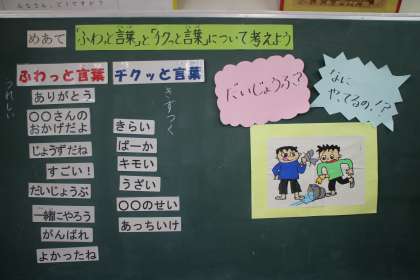 めあて
「ふわっと言葉」と「チクッと言葉」について考えよう
ふわっと言葉
チクッと言葉
うれしい
きずつく
ありがとう
〇〇さんの
おかげだよ
じょうずだね
すごい！
だいじょうぶ
一緒にやろう
がんばれ
よかったね
きらい
ばーか
キモい
うざい
〇〇のせい
あっちいけ
だいじょうぶ？
なに
やってるの！？